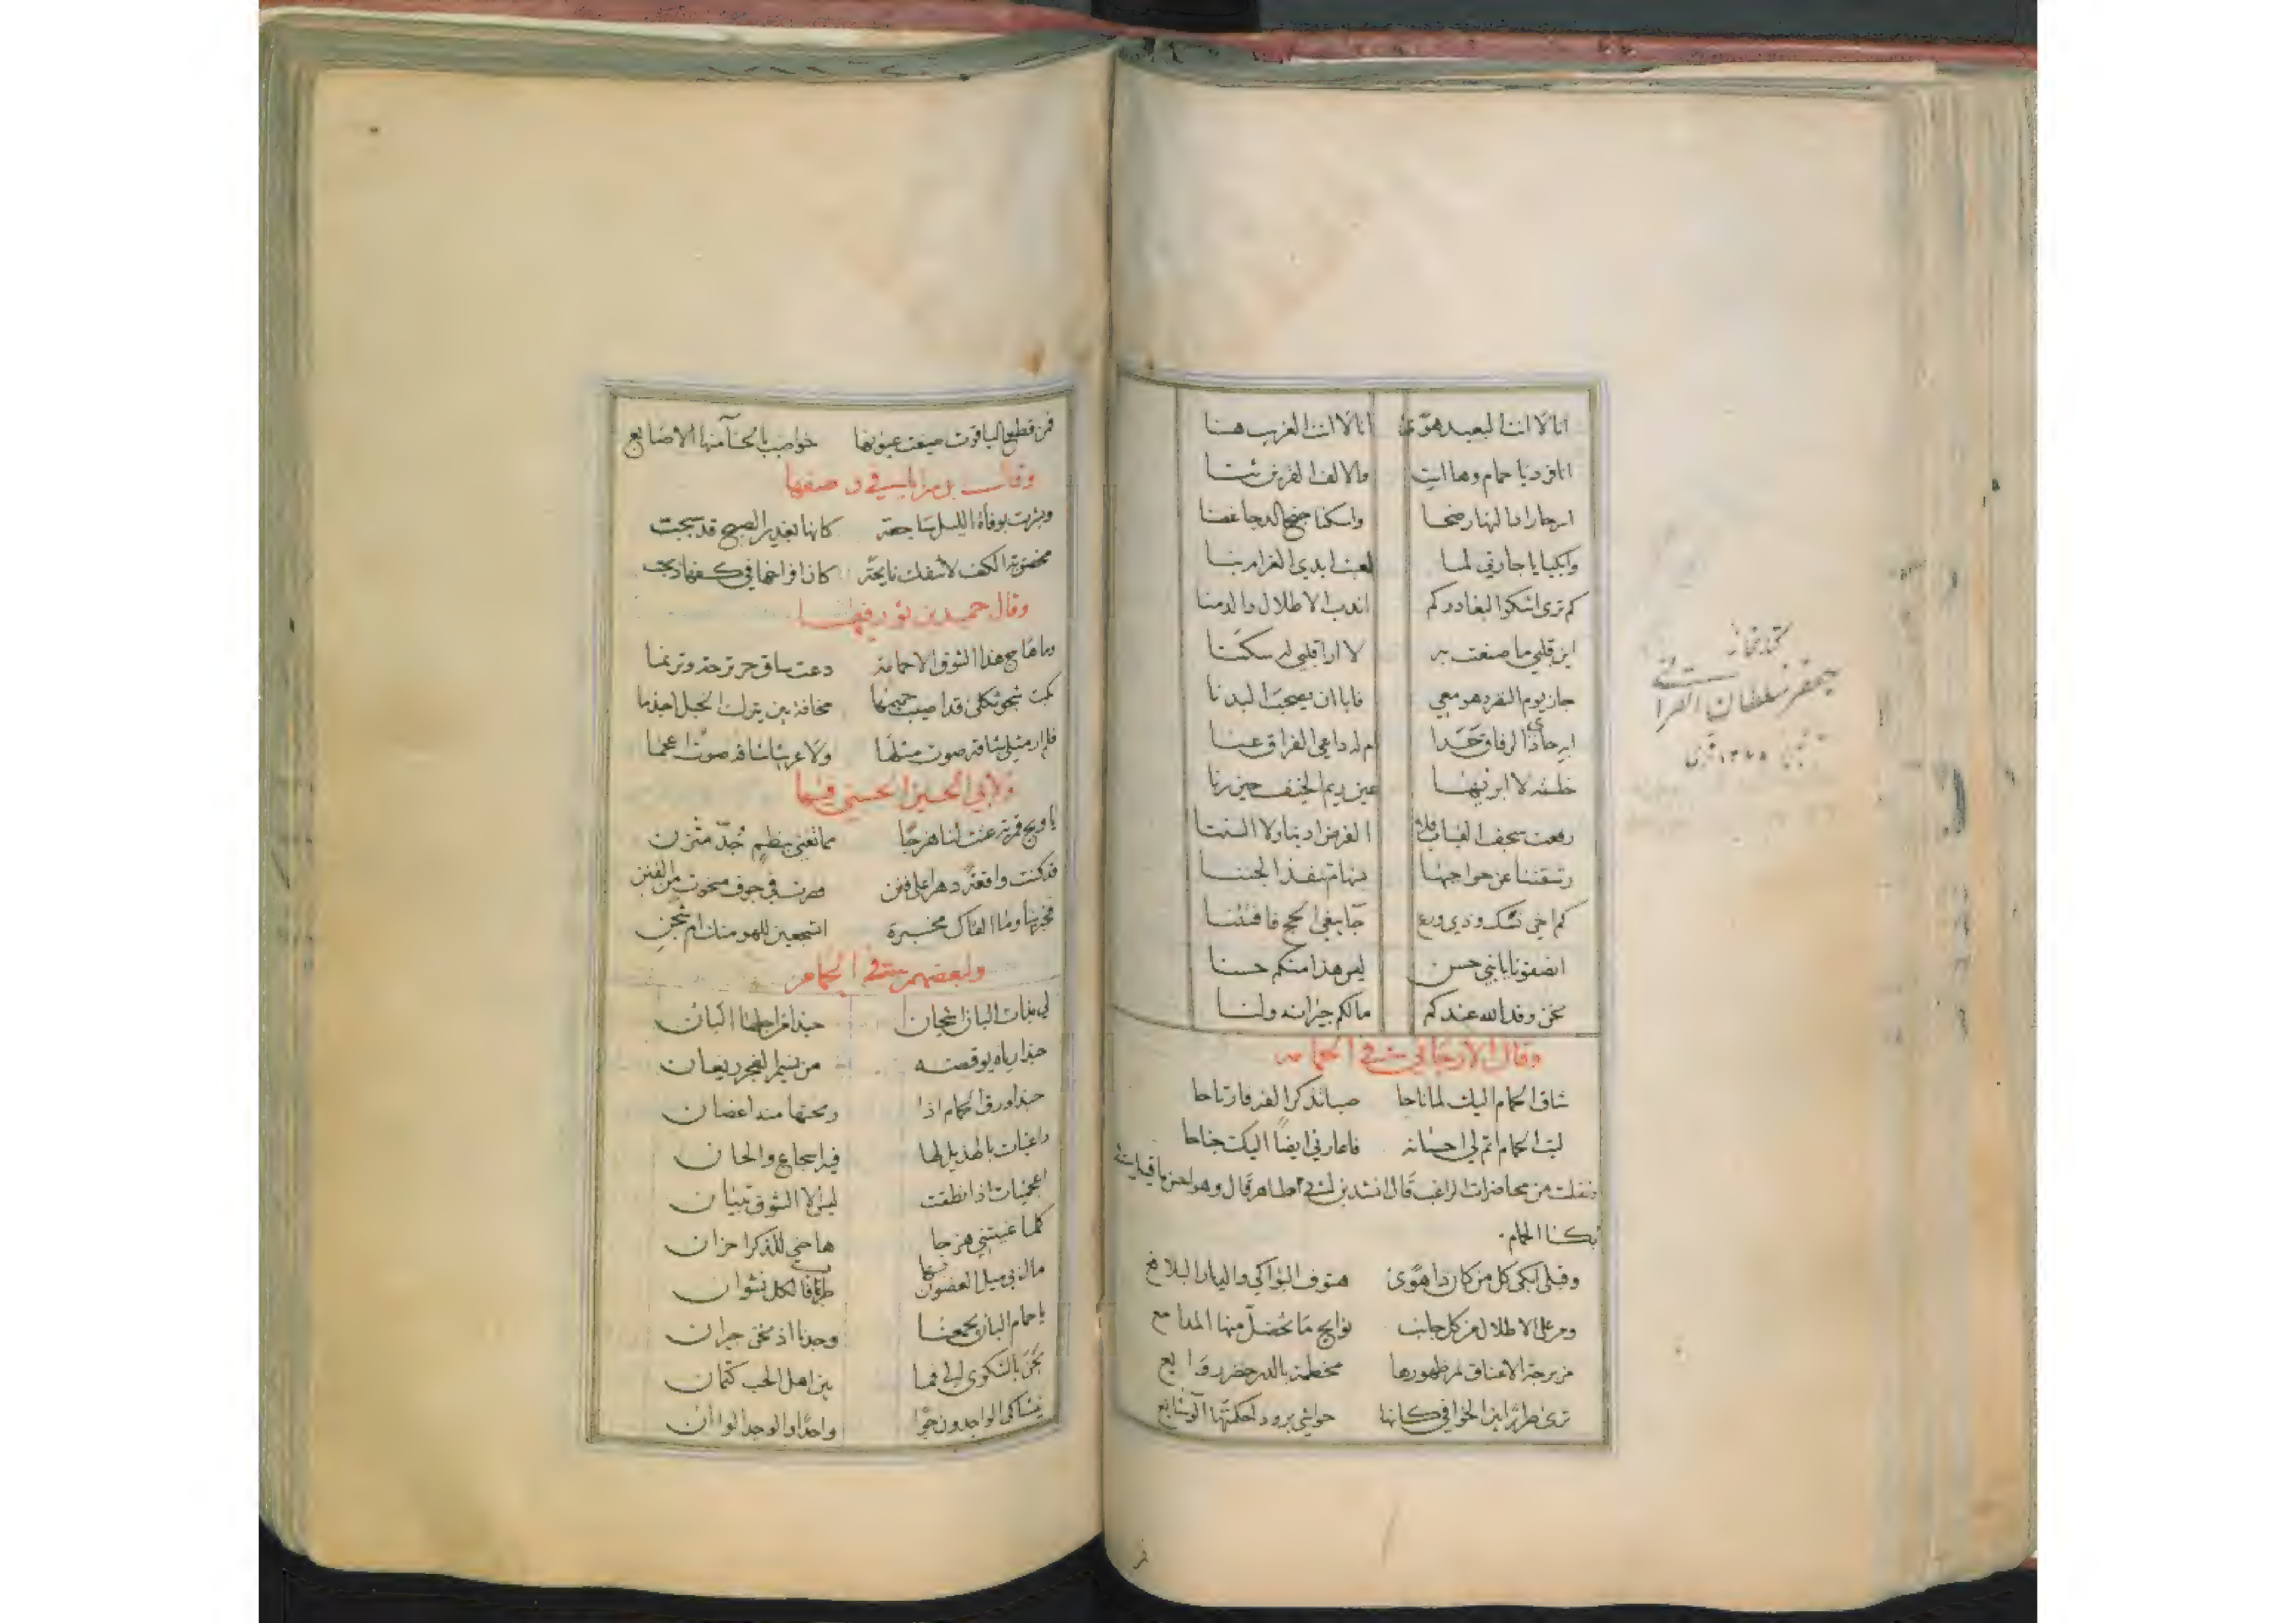 انا لا انت البعيد هوى انا لا انت الغريب هنا
انا فرد يا حمام وها انت والالف القرين ثنا
اسرحا راد النهار ضحا واسكنا جنح الدجا غصنا
وابكيا يا جارتي لما لعبت ايدي الغرام بنا
كم ترى اشكو البعاد وكم اندب الاطلال والدمنا
اين قلبي ما صنعت به لا ارا قلبي له سكنا
حان يوم النفر وهو معي فابا ان يصحب البدنا
ابه حادي الرفاق حدا ام له داعي الفراق عنا
خلسته لا ابرئها عين ريم الخيف حين رنا
رفعت سجف القباب فلا الفرض ادينا ولا السننا
رشقتنا عن حواجبها بسهام تنفذ الجننا
كم اخي نسك وذي ورع جا يبغي الحج فافتتنا
انصفونا يا بني حسن ليس هذا منكم حسنا
نحن وفد الله عندكم مالكم جيرانه ولنا
وقال الارجاني في الحمامه
شاق الحمام اليك لما ناحا صبا تذكر الفه فارتاحا
ليت الحمام اتم لي احسانه فاعارني ايضا اليك جناحا
ونقلت من محاضرات الراغب قال انشدني ابي طاهر قال وهو احسن ما قيل في
بكا الحمام.
وقبلي ابكى كل من كان ذا هوى هتوف البواكي والديار البلاقع
وهن على الاطلال من كل جانب نوايح ما تخضل منها المدامع
مزبرجة الاعناق نمر ظهورها مخطمة بالدر خضر روايع
ترى طررا بين الخوافي كانها حواشي برود احكمتها الوشايع
كتابخانه
جعفر سلطان القرائي
تبريز
ومن قطع الياقوت صيغت عيونها خواضب بالحنا منها الاصابع
وقال في وصفها
وبشرت بوفاة الليل ساجعة كانها بغدير الصبح قد سبحت
مخضوبة الكف لا تنفك نايحة كان افراخها في كفها ذبحت
وقال حميد بن ثور فيها
وما هاج هذا الشوق الا حمامة دعت ساق حر ترحة وترنما
بكت شجو ثكلى قد اصيب حميمها مخافة بين يترك الحبل اجذما
فلم ار مثلي شاقه صوت مثلها ولا عربيا شاقه صوت اعجما
ولابي الحسين الحسني فيها
يا ويح قمرية غنت لنا هزجا مما تغني بنظم جد متزن
قد كنت واقعة دهرا على فنن فصرت في جوف منحوت من الفنن
فخبرينا وما القاك مخبرة اتسجعين للهو منك ام شجن
ولبعضهم في الحمام
لي بذات البان اشجان حبذا من اجلها البان
حبذا رياه يوقصه من نسيم الفجر ريعان
حبذا ورق الحمام اذا رمحتها منه اغصان
داعيات بالهديل لها فيه اسجاع والحان
اعجميات اذا نطقت ليس الا الشوق تبيان
كلما غنيتني هزجا هاجني للذكر احزان
مال بي ميل الغصون بها طربا فالكل نشوان
يا حمام البان يجمعنا وجدنا اذ نحن جيران
نحن بالشكوى لي فما بين اهل الحب كتمان
يتشاكى الواجدون جوا واحدا والوجد الوان